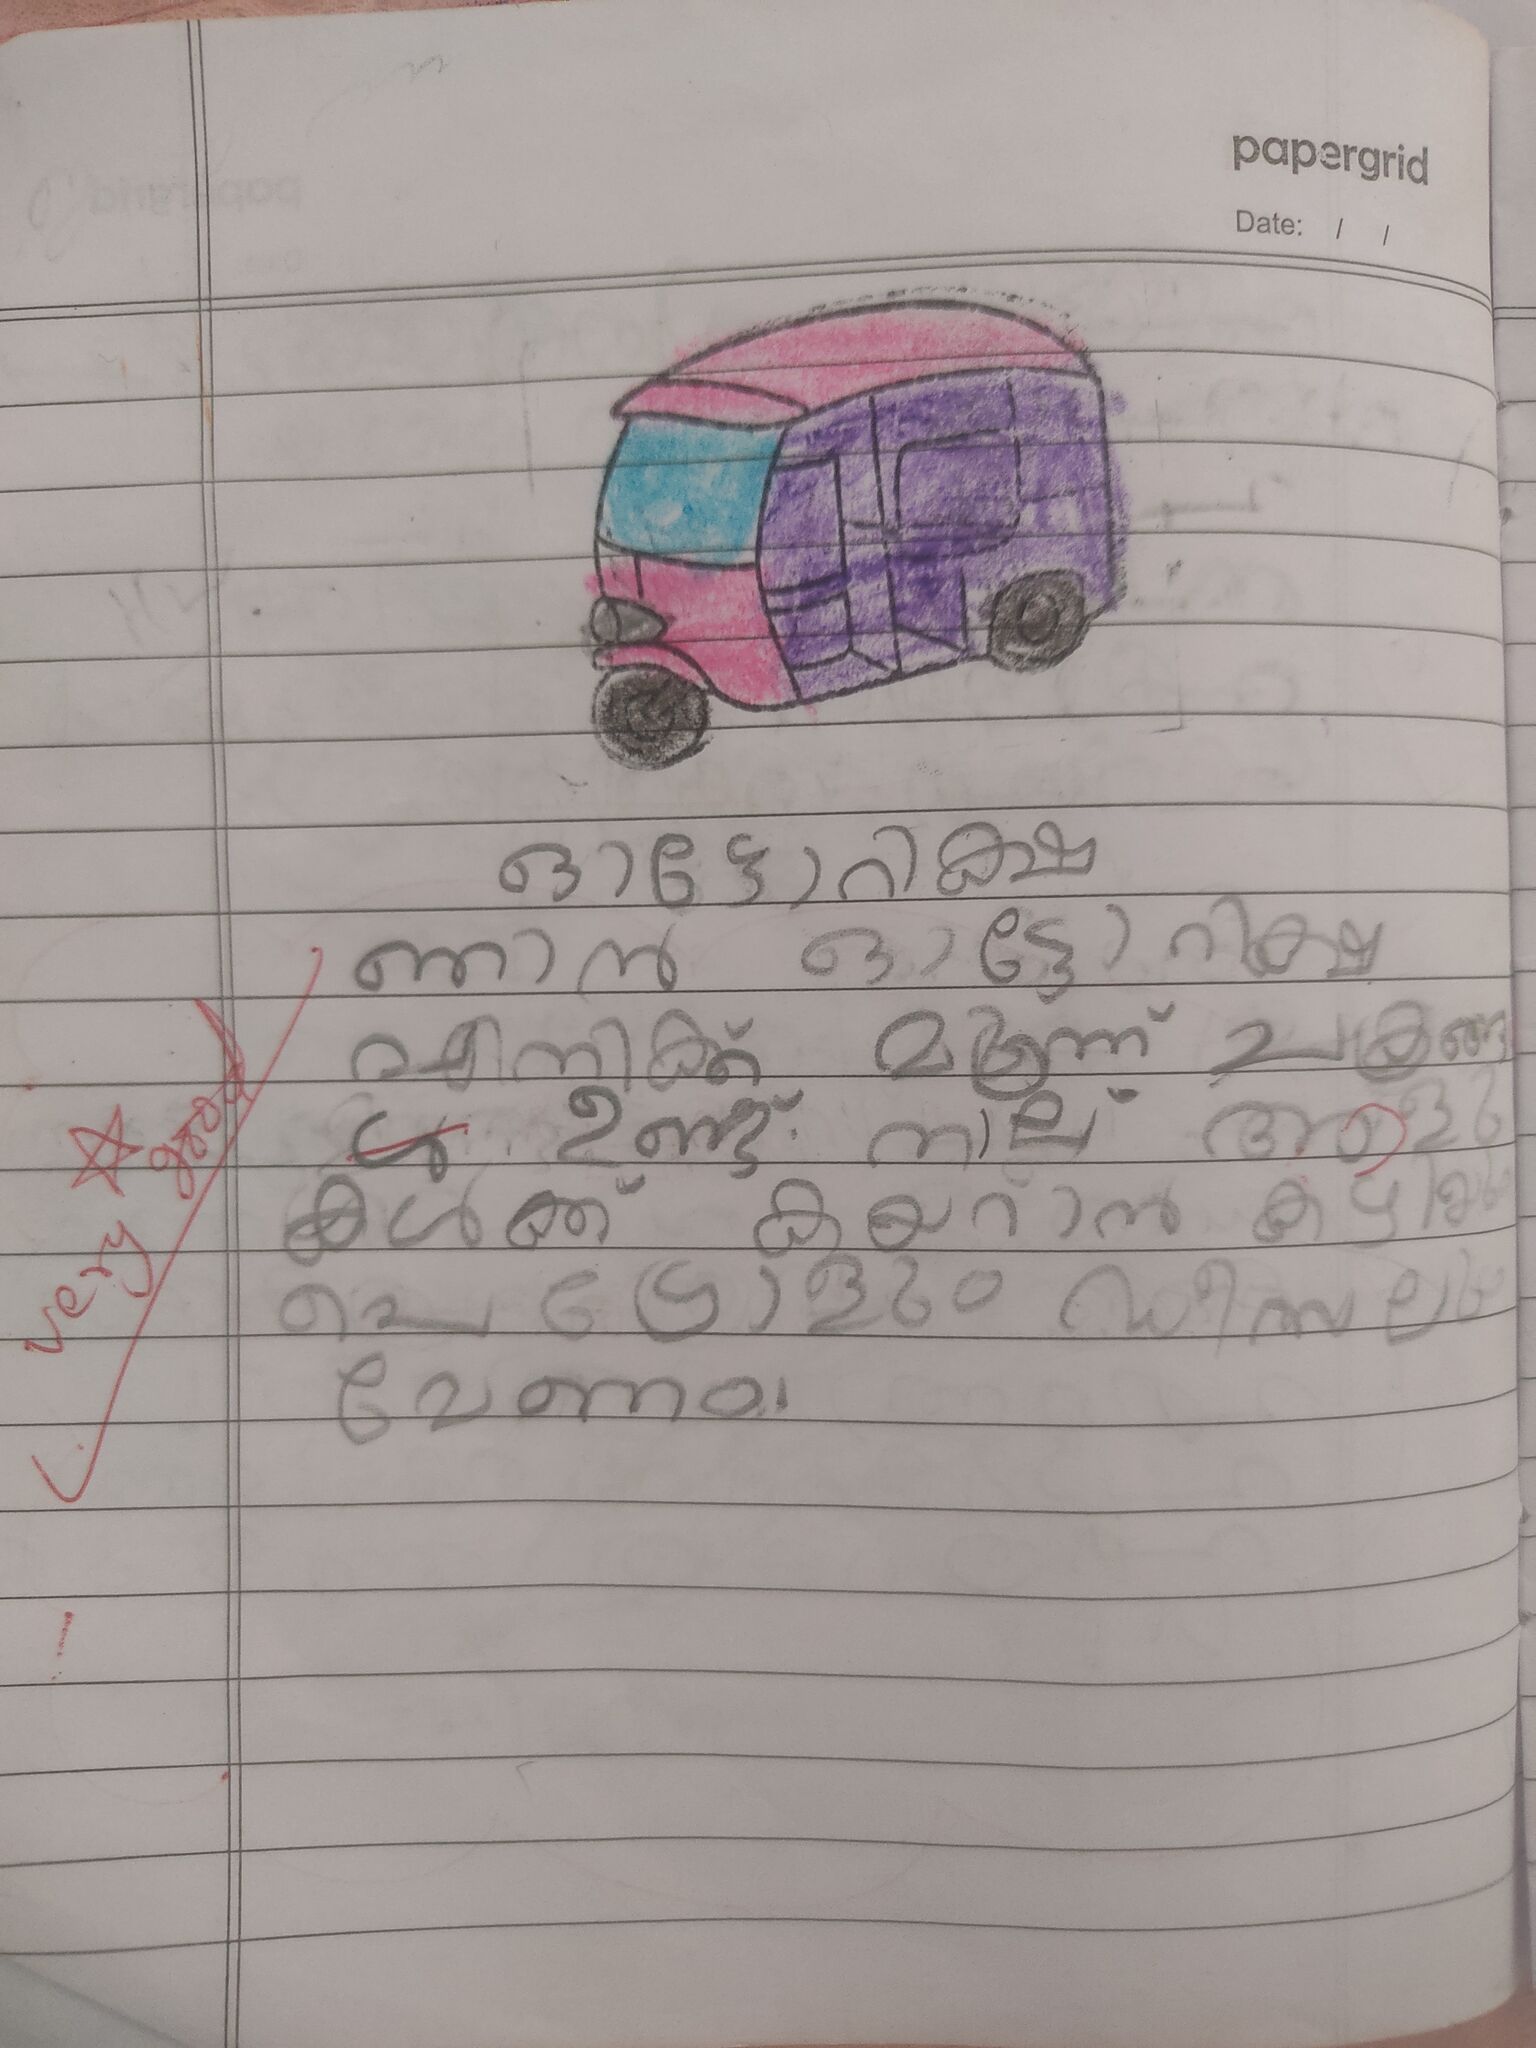 papergrid
Date: / /
ഓട്ടോറിക്ഷ
ഞാൻ ഓട്ടോറിക്ഷ
എനിക്ക് മൂന്ന് ചക്രങ്ങ
ൾ ഉണ്ട്. നാല് ആളു
കൾക്ക് കയറാൻ കഴിയും
പെട്രോളും ഡീസലും
വേണം.
very good